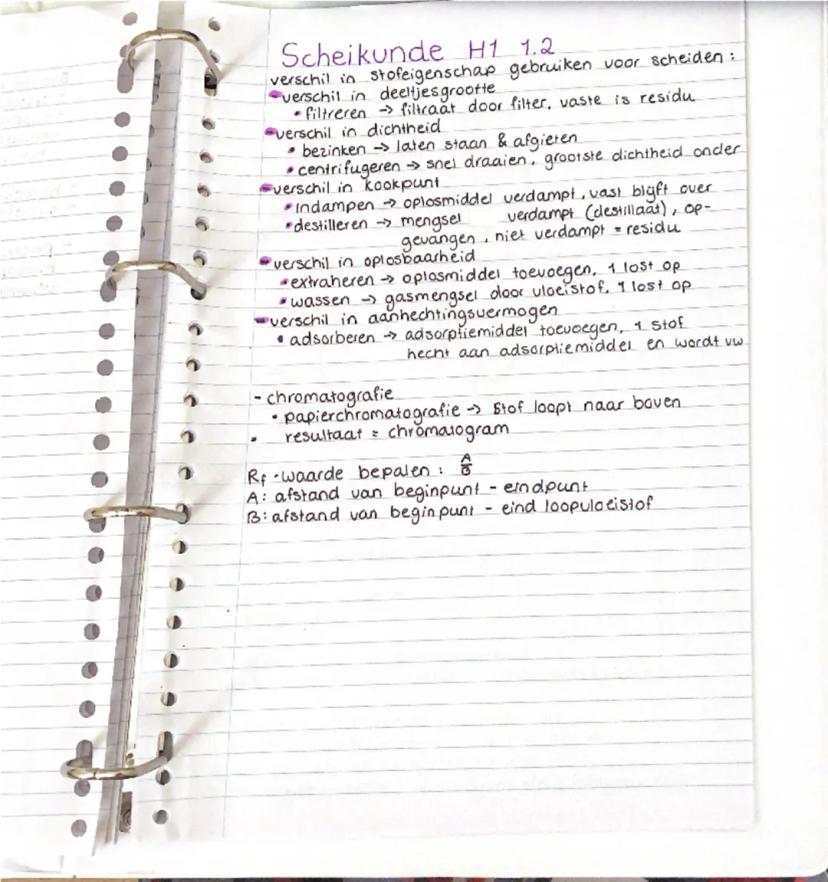 Scheikunde H1 1.2
verschil in stofeigenschap gebruiken voor scheiden:
- verschil in deeltjesgrootte
• filtreren → filtraat door filter, vaste is residu
- verschil in dichtheid
• bezinken → laten staan & afgieten
• centrifugeren → snel draaien, grootste dichtheid onder
- verschil in kookpunt
• indampen → oplosmiddel verdampt, vast blijft over
• destilleren → mengsel verdampt (destillaat), op-
gevangen, niet verdampt = residu
- verschil in oplosbaarheid
• extraheren → oplosmiddel toevoegen, 1 lost op
• wassen → gasmengsel door vloeistof, 1 lost op
- verschil in aanhechtingsvermogen
• adsorberen → adsorptiemiddel toevoegen, 1 stof
hecht aan adsorptiemiddel en wordt vw
- chromatografie
• papierchromatografie → stof loopt naar boven
• resultaat = chromatogram
Rf-waarde bepalen: A/B
A: afstand van beginpunt - eindpunt
B: afstand van beginpunt - eind loopvloeistof